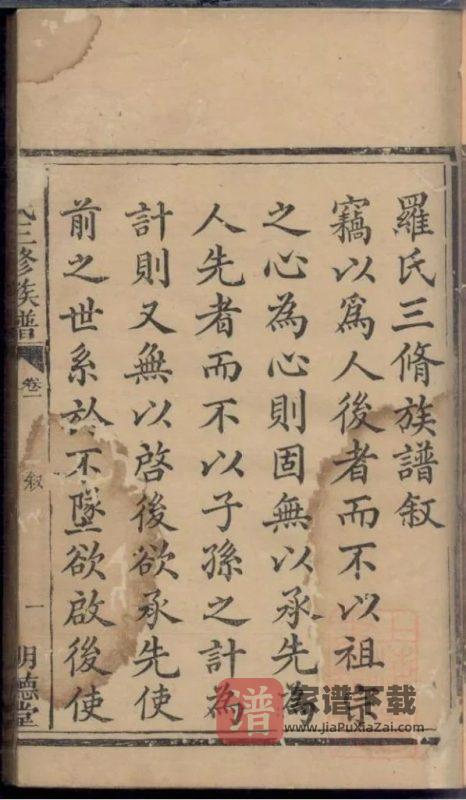 羅氏三脩族譜叙
竊以爲人後者而不以祖宗
之心為心則固無以承先為
人先者而不以子孫之計為
計則又無以啓後欲承先使
前之世系於不墜欲啟後使
氏三修族譜
卷一
叙
一
明德堂
譜
家谱下载
www.JiaPuXiaZai.com